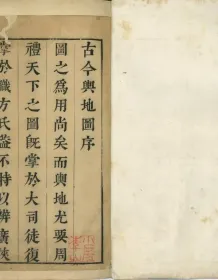 古今輿地圖序
圖之為用尚矣而輿地尤要周
禮天下之圖既掌於大司徒復
掌於職方氏蓋不特以辨廣狹